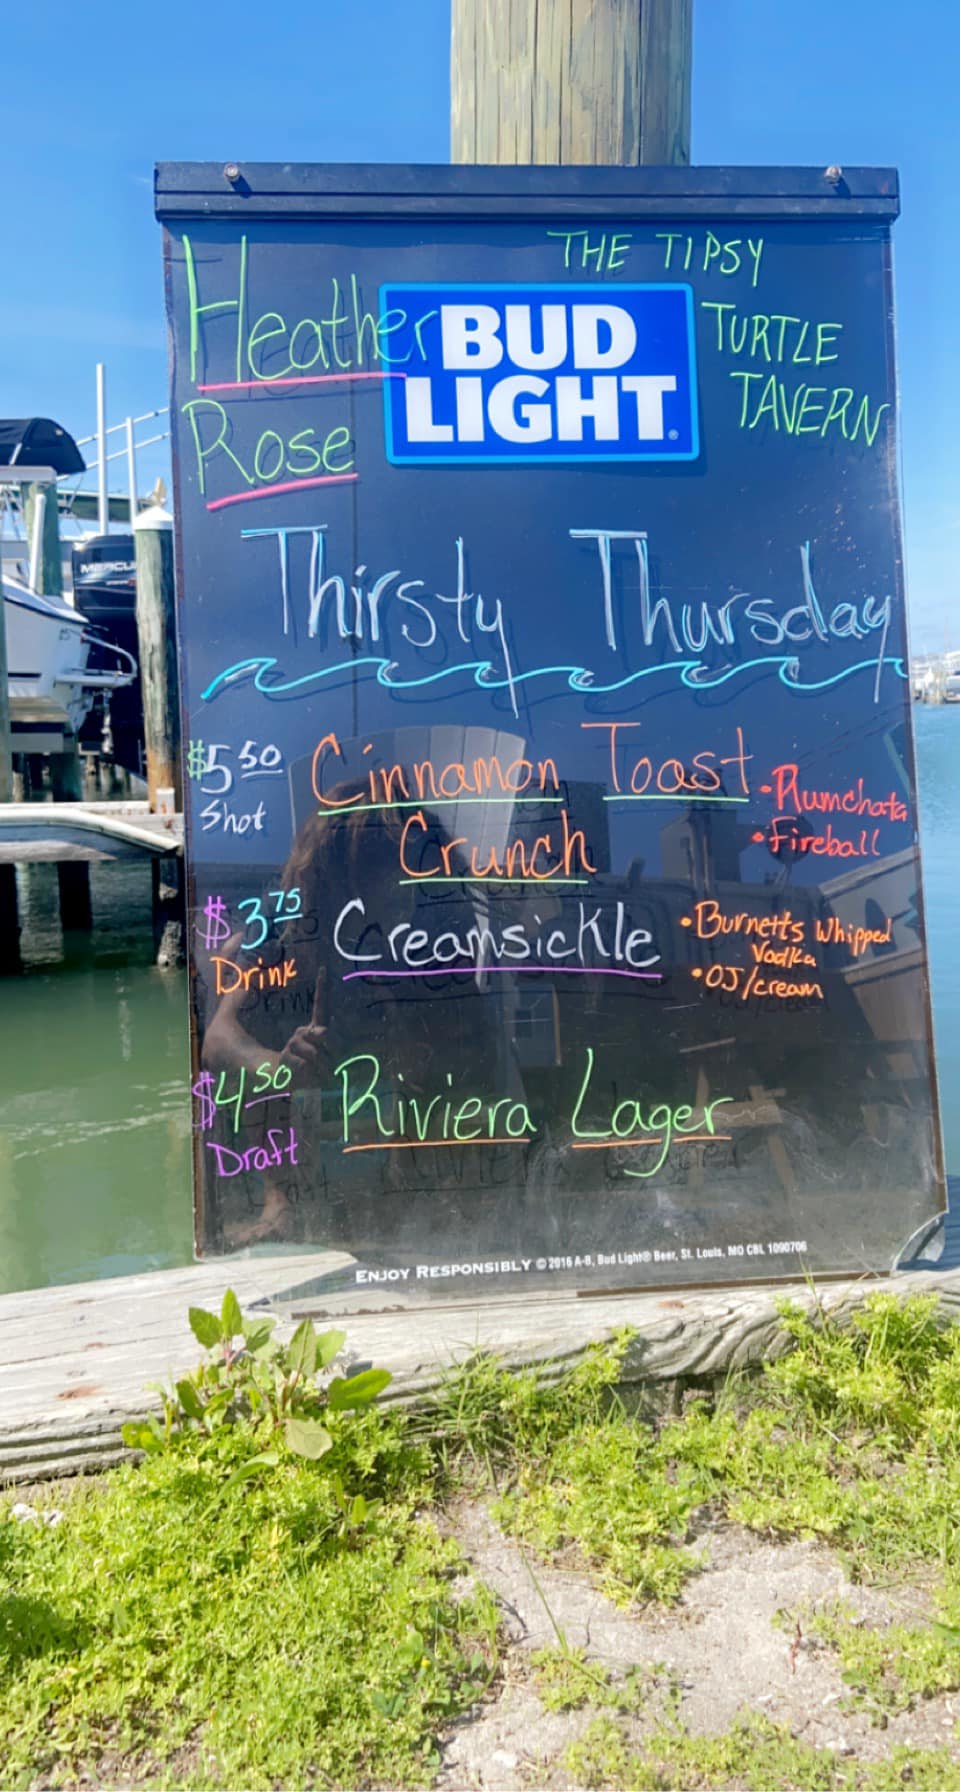 THE TIPSY
Heather
BUD
LIGHT
TURTLE
TAVERN
Rose
Thirsty Thursday
$5.50 Cinnamon Toast
Shot
Crunch
•Rumchata
•Fireball
$3.75 Creamsickle
Drink
•Burnetts Whipped
Vodka
•OJ/cream
$4.50 Riviera Lager
Draft
ENJOY RESPONSIBLY © 2016 A-B, Bud Light® Beer, St. Louis, MO CBL 1090706
MERCU